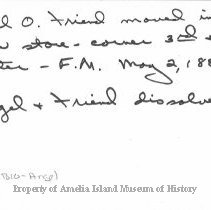 O. Friend moved in
store - corner 3rd
- F.M. May 2, 188
+ Friend dissolve
Property of Amelia Island Museum of History